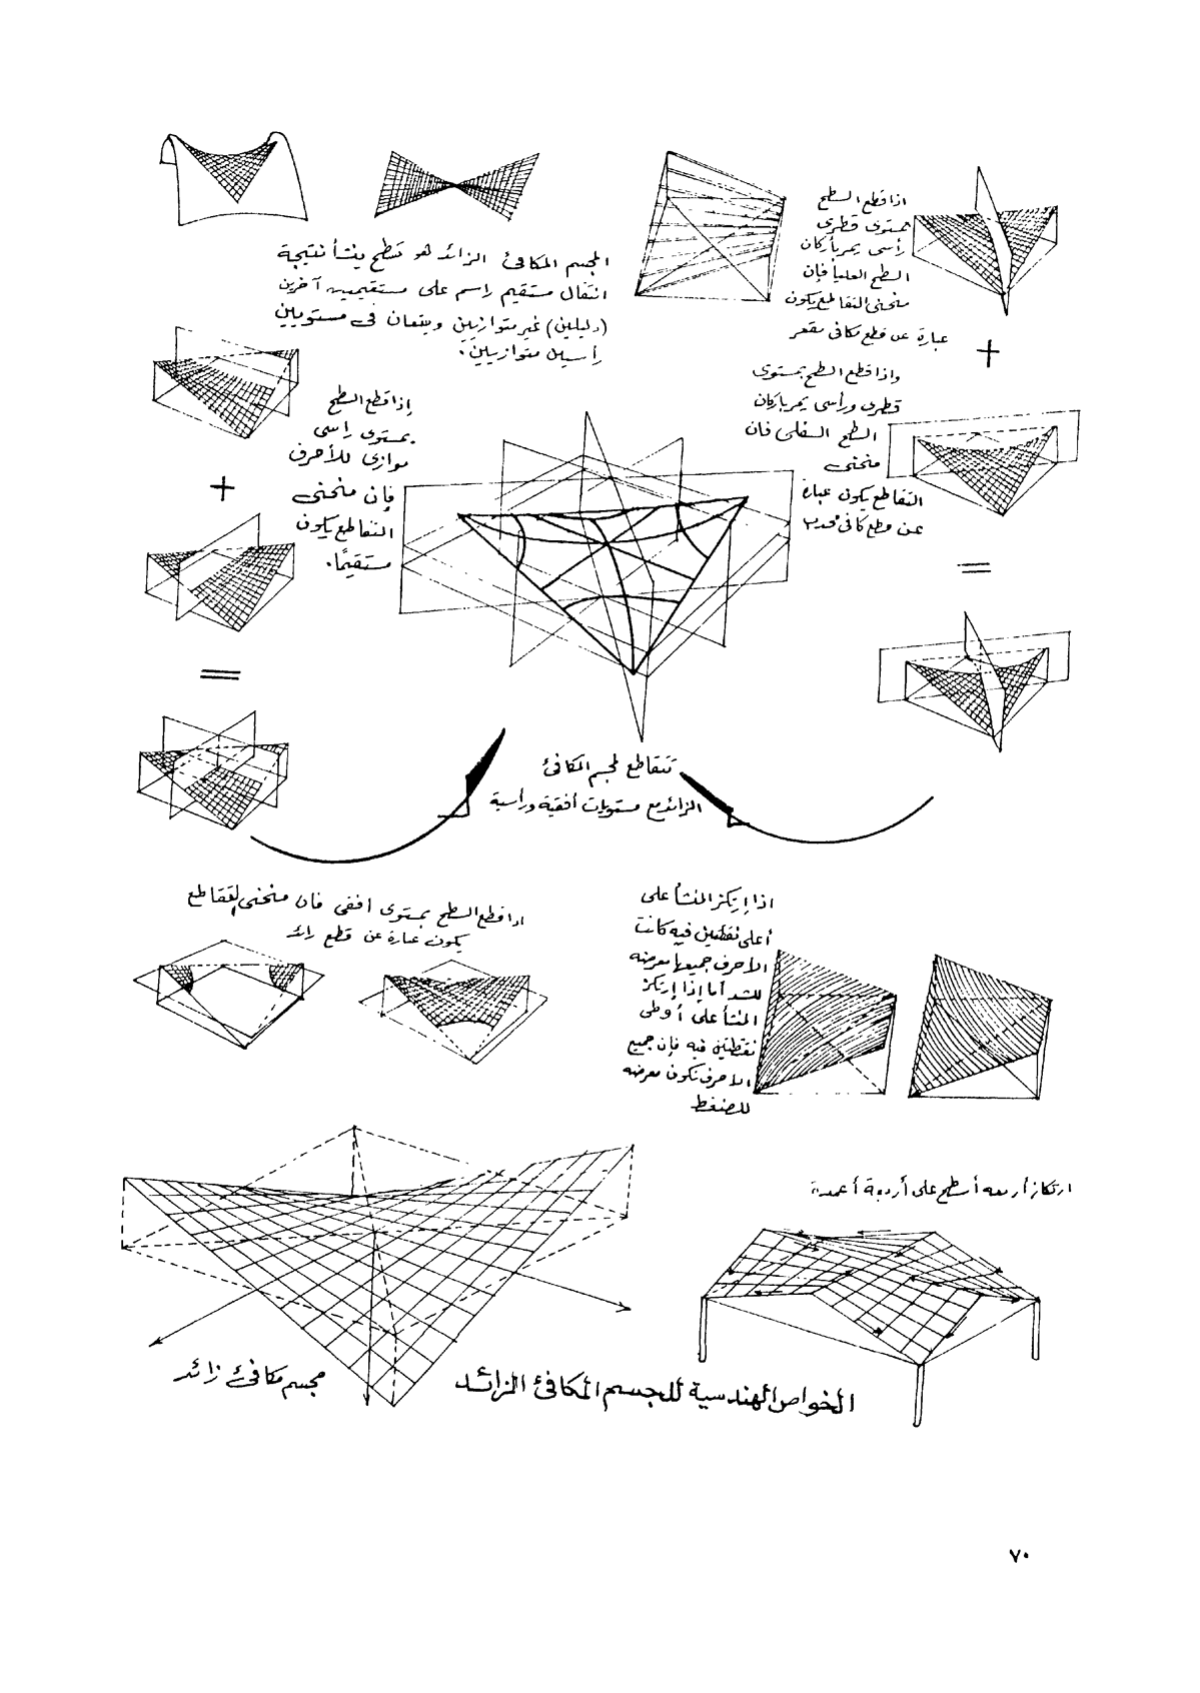 المجسم المكافئ الزائد هو سطح ينشأ نتيجة
انتقال مستقيم راسم على مستقيمين آخرين
(دليلين) غير متوازيين ويقعان فى مستويين
رأسيين متوازيين.
اذا قطع السطح
بمستوى قطرى
رأسى يمر بأركان
السطح العليا فإن
منحنى التقاطع يكون
عبارة عن قطع مكافى مقعر
+
واذا قطع السطح بمستوى
قطرى ورأسى يمر باركان
السطح السفلى فان
منحنى
التقاطع يكون عبارة
عن قطع كافى محدب
=
إذا قطع السطح
بمستوى رأسى
موازى للأحرف
فإن منحنى
التقاطع يكون
مستقيمًا.
+
=
تتقاطع المجسم المكافئ
الزائد مع مستويات أفقية ورأسية
اذا قطع السطح بمستوى افقى فان منحنى التقاطع
يكون عبارة عن قطع زائد
اذا إرتكز المنشأ على
أعلى نقطتين فيه كانت
الاحرف جميعها معرضه
للشد أما إذا إرتكز
المنشأ على أوطى
نقطتين فيه فإن جميع
الاحرف تكون معرضه
للضغط
ارتكاز أربعه أسطح على أربعة أعمدة
مجسم مكافئ زائد
الخواص الهندسية للجسم المكافئ الزائد
٧٠